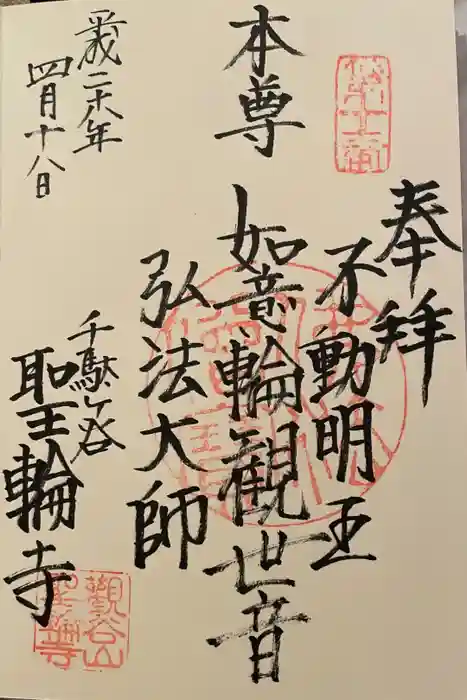 奉拝
不動明王
本尊
如意輪観世音
弘法大師
平成二十八年
四月十八日
千駄ヶ谷
聖輪寺
觀谷山
聖輪寺